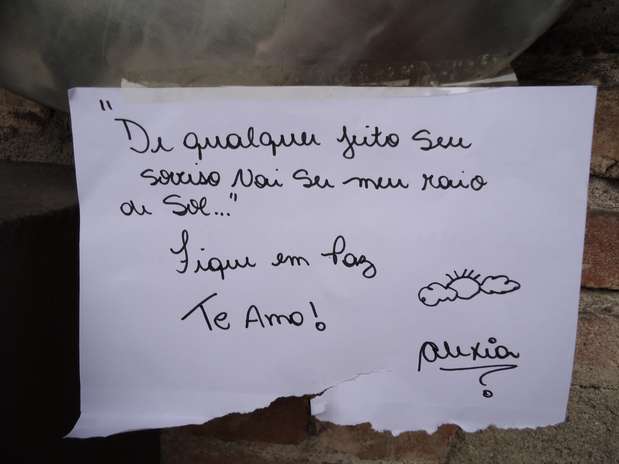 "De qualquer jeito seu
sorriso vai ser meu raio
de Sol..."
Fique em Paz
Te Amo!
Alexia